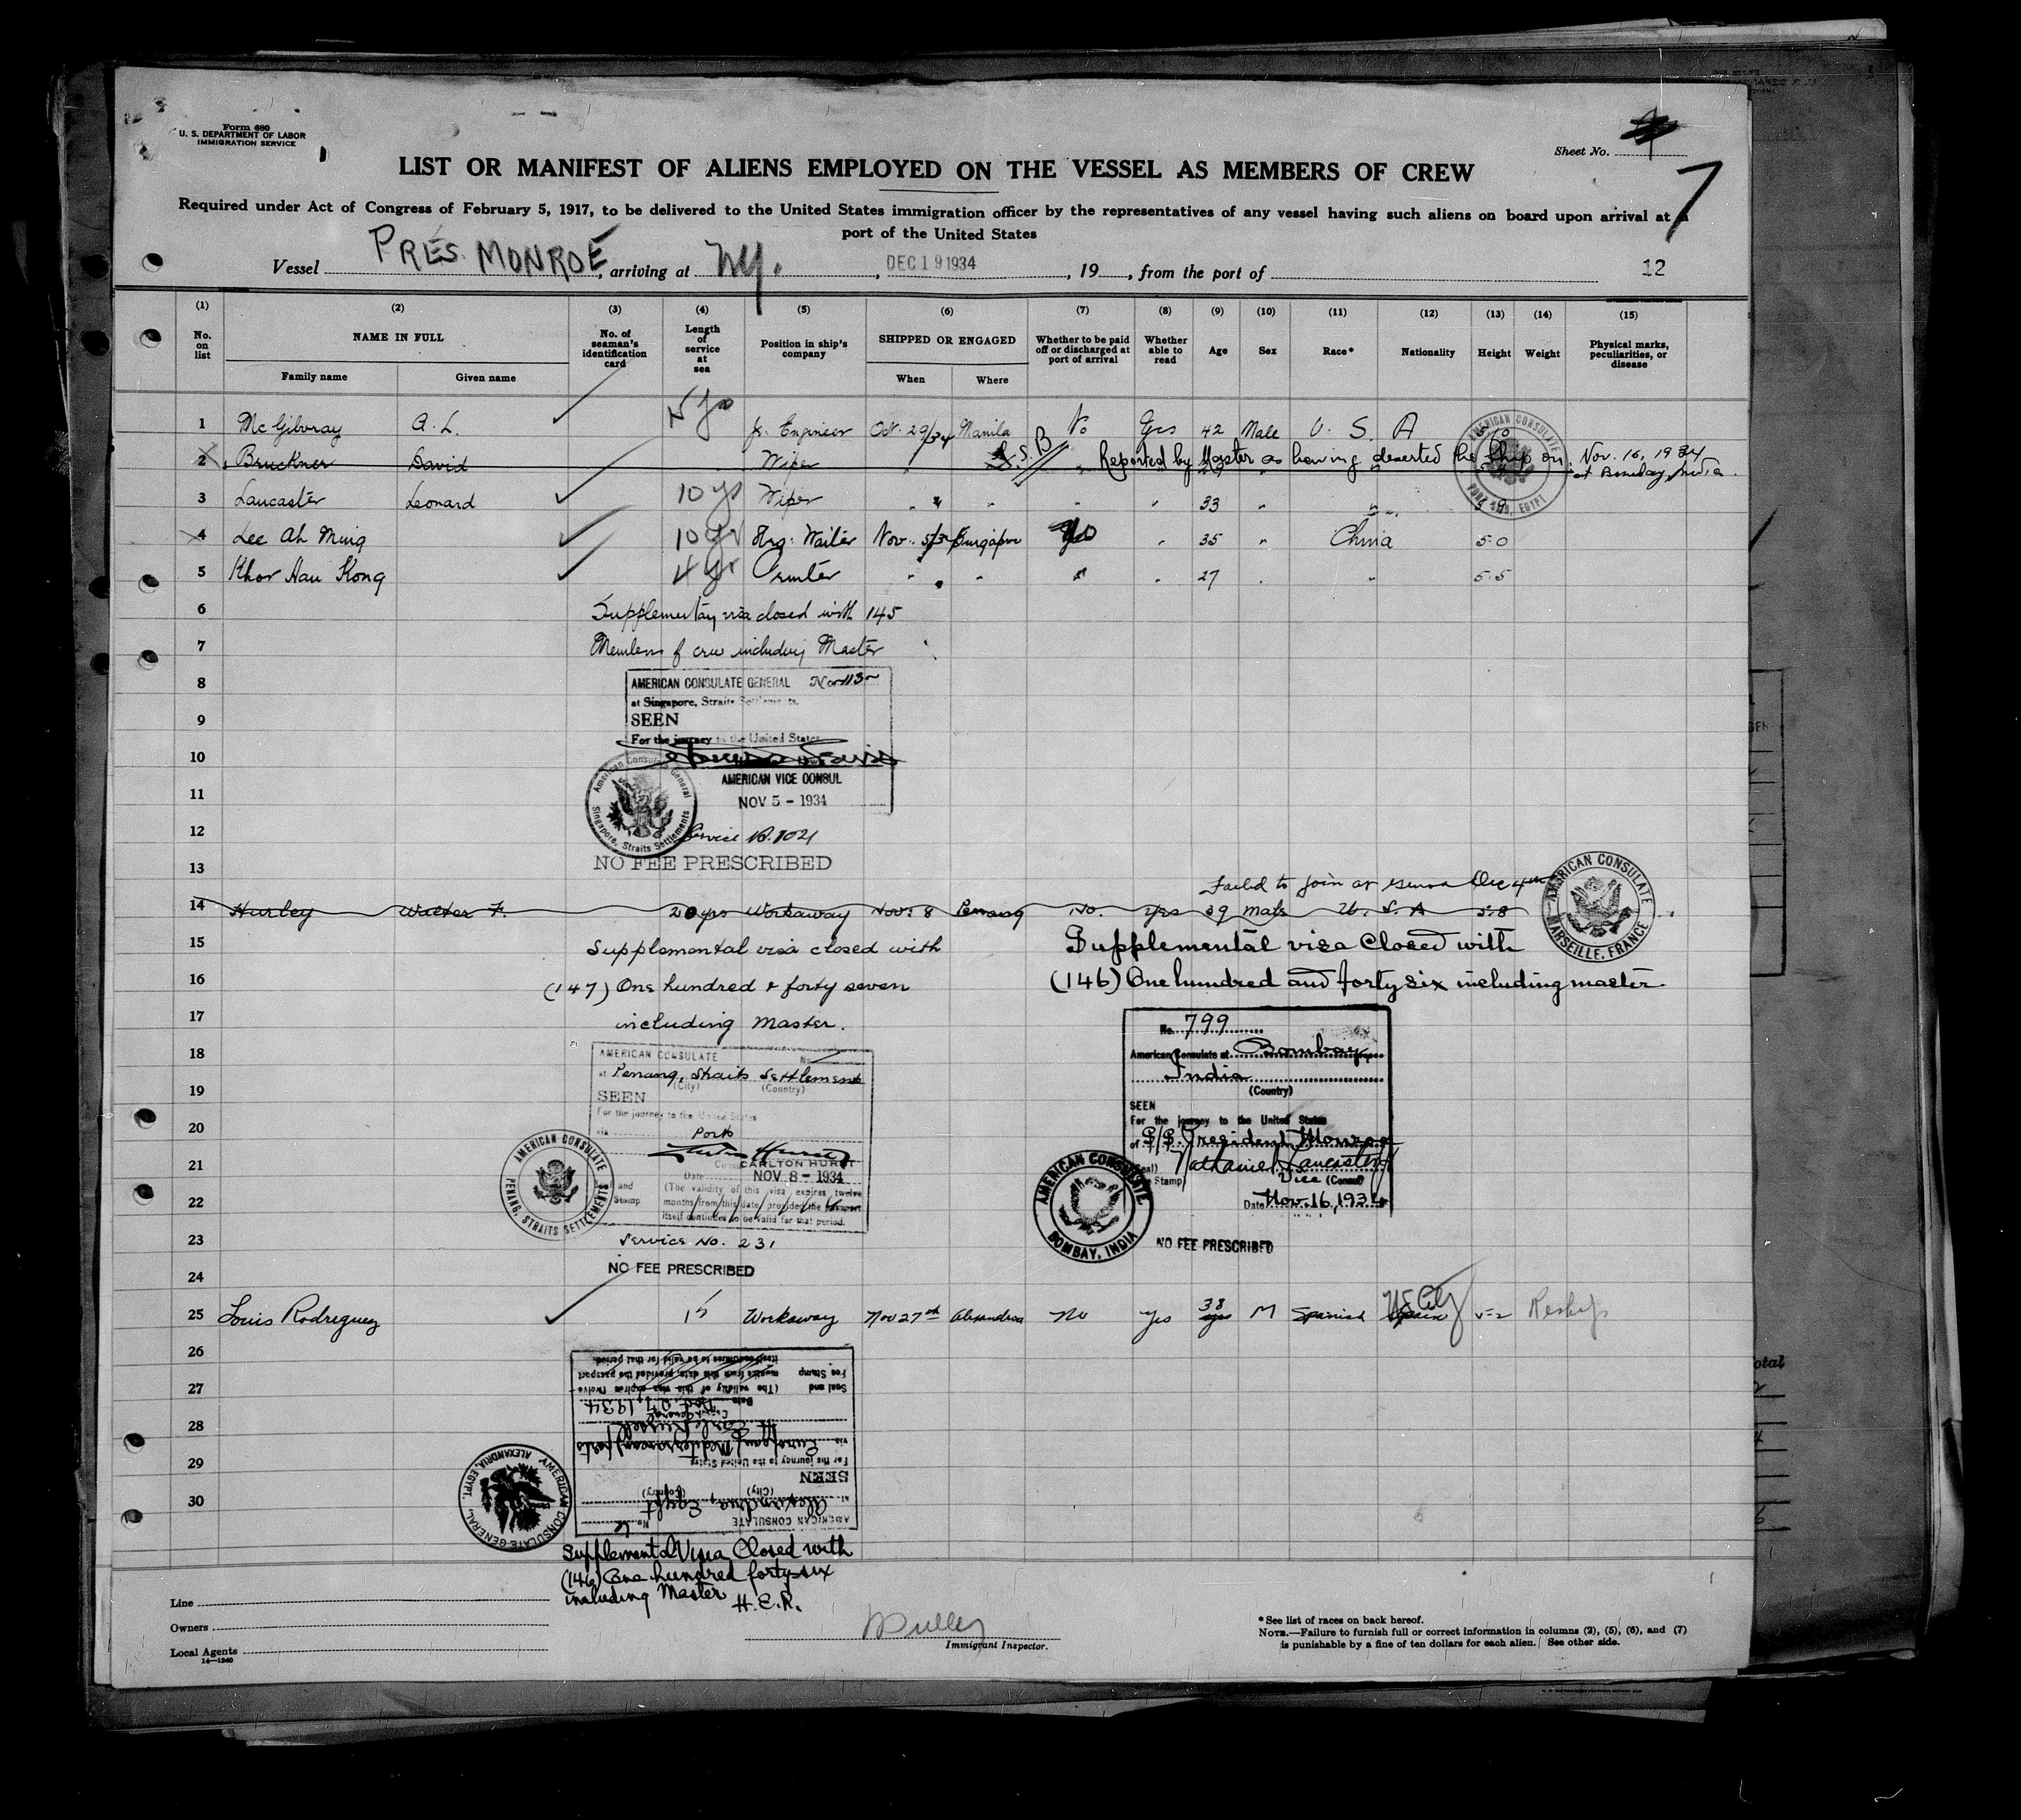 Form 680
U. S. DEPARTMENT OF LABOR
IMMIGRATION SERVICE
Sheet No.
7
LIST OR MANIFEST OF ALIENS EMPLOYED ON THE VESSEL AS MEMBERS OF CREW
Required under Act of Congress of February 5, 1917, to be delivered to the United States immigration officer by the representatives of any vessel having such aliens on board upon arrival at a
port of the United States
Vessel PRES. MONROE, arriving at N.Y., DEC 19 1934, 19, from the port of
12
(1) (2) (3) (4) (5) (6) (7) (8) (9) (10) (11) (12) (13) (14) (15)
No. on list NAME IN FULL No. of seaman's identification card Length of service at sea Position in ship's company SHIPPED OR ENGAGED Whether to be paid off or discharged at port of arrival Whether able to read Age Sex Race* Nationality Height Weight Physical marks, peculiarities, or disease
Family name Given name When Where
1 McGilvray A. L. Jr. Engineer Oct. 29/34 Manila No Yes 42 Male U. S. A
2 Bruckner David Wiper " Reported by Master as having deserted the ship on Nov. 16, 1934
at Bombay, India.
3 Lancaster Leonard 10 ys Wiper " " " " 33 " "
4 Lee Ah Ming 10 yr Waiter Nov. 5/34 Singapore 35 " China 5.0
5 Khor Hau Kong 4 yr " " " " 27 " " 5.5
6 Supplementary visa closed with 145
7 Members of crew including Master
8 AMERICAN CONSULATE GENERAL
at Singapore, Straits Settlements.
9 SEEN
For the journey to the United States
10
AMERICAN VICE CONSUL
11 NOV 5 - 1934
American Consulate General Singapore, Straits Settlements
12 Service No. 1021
NO FEE PRESCRIBED
13
Failed to join at Genoa Dec 4th
AMERICAN CONSULATE MARSEILLE, FRANCE
14 Hurley Walter F. 20 yrs Workaway Nov. 8 Penang No. Yes 39 Male U. S. A 5.8
15 Supplemental visa closed with
16 (147) One hundred & forty seven
17 including Master.
Supplemental visa closed with
(146) One hundred and forty six including master
18 AMERICAN CONSULATE No.
at Penang, Straits Settlements
(City) (Country)
19 SEEN
For the journey to the United States
20 via Ports
21 CARLTON HURST
Date NOV 8 - 1934
22 (The validity of this visa expires twelve
months from this date provided the passport
itself continues to be valid for that period.
and Stamp
AMERICAN CONSULATE PENANG, STRAITS SETTLEMENTS
23 Service No. 231
24 NO FEE PRESCRIBED
No. 799
American Consulate at Bombay,
India
(Country)
SEEN
For the journey to the United States
of S/S. President Monroe
Nathaniel Lancaster Jr
Vice (Consul)
Date Nov. 16, 1934
AMERICAN CONSULATE BOMBAY, INDIA
NO FEE PRESCRIBED
AMERICAN CONSULATE PORT SAID, EGYPT
25 Louis Rodreguez 15 Workaway Nov 27th Alexandria No yes 38 M Spanish Spain
26
27
28
29
30
AMERICAN CONSULATE No.
at Alexandria, Egypt
(City) (Country)
SEEN
For the journey to the United States
via European/Mediterranean/ports
H. Earle Russell
Consul General
Date Nov. 27, 1934
Seal and Fee Stamp (The validity of this visa expires twelve
months from this date provided the passport
itself continues to be valid for that period.
AMERICAN CONSULATE GENERAL ALEXANDRIA, EGYPT.
Supplemental Visa Closed with
(146) One hundred forty-six
including Master H. E. R.
Line
Owners
Local Agents
14—1240
Immigrant Inspector.
*See list of races on back hereof.
NOTE.—Failure to furnish full or correct information in columns (2), (5), (6), and (7)
is punishable by a fine of ten dollars for each alien. See other side.